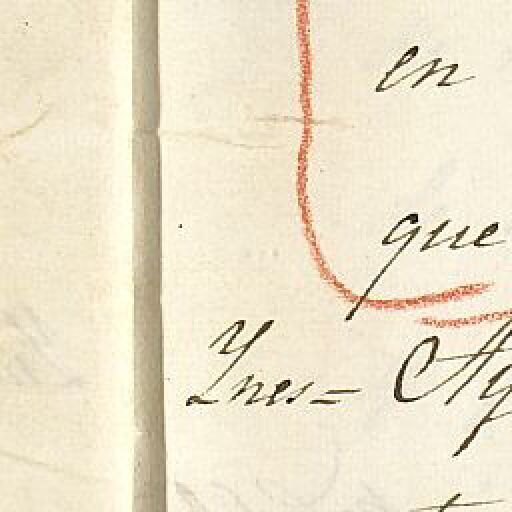 en
que
Ynes=